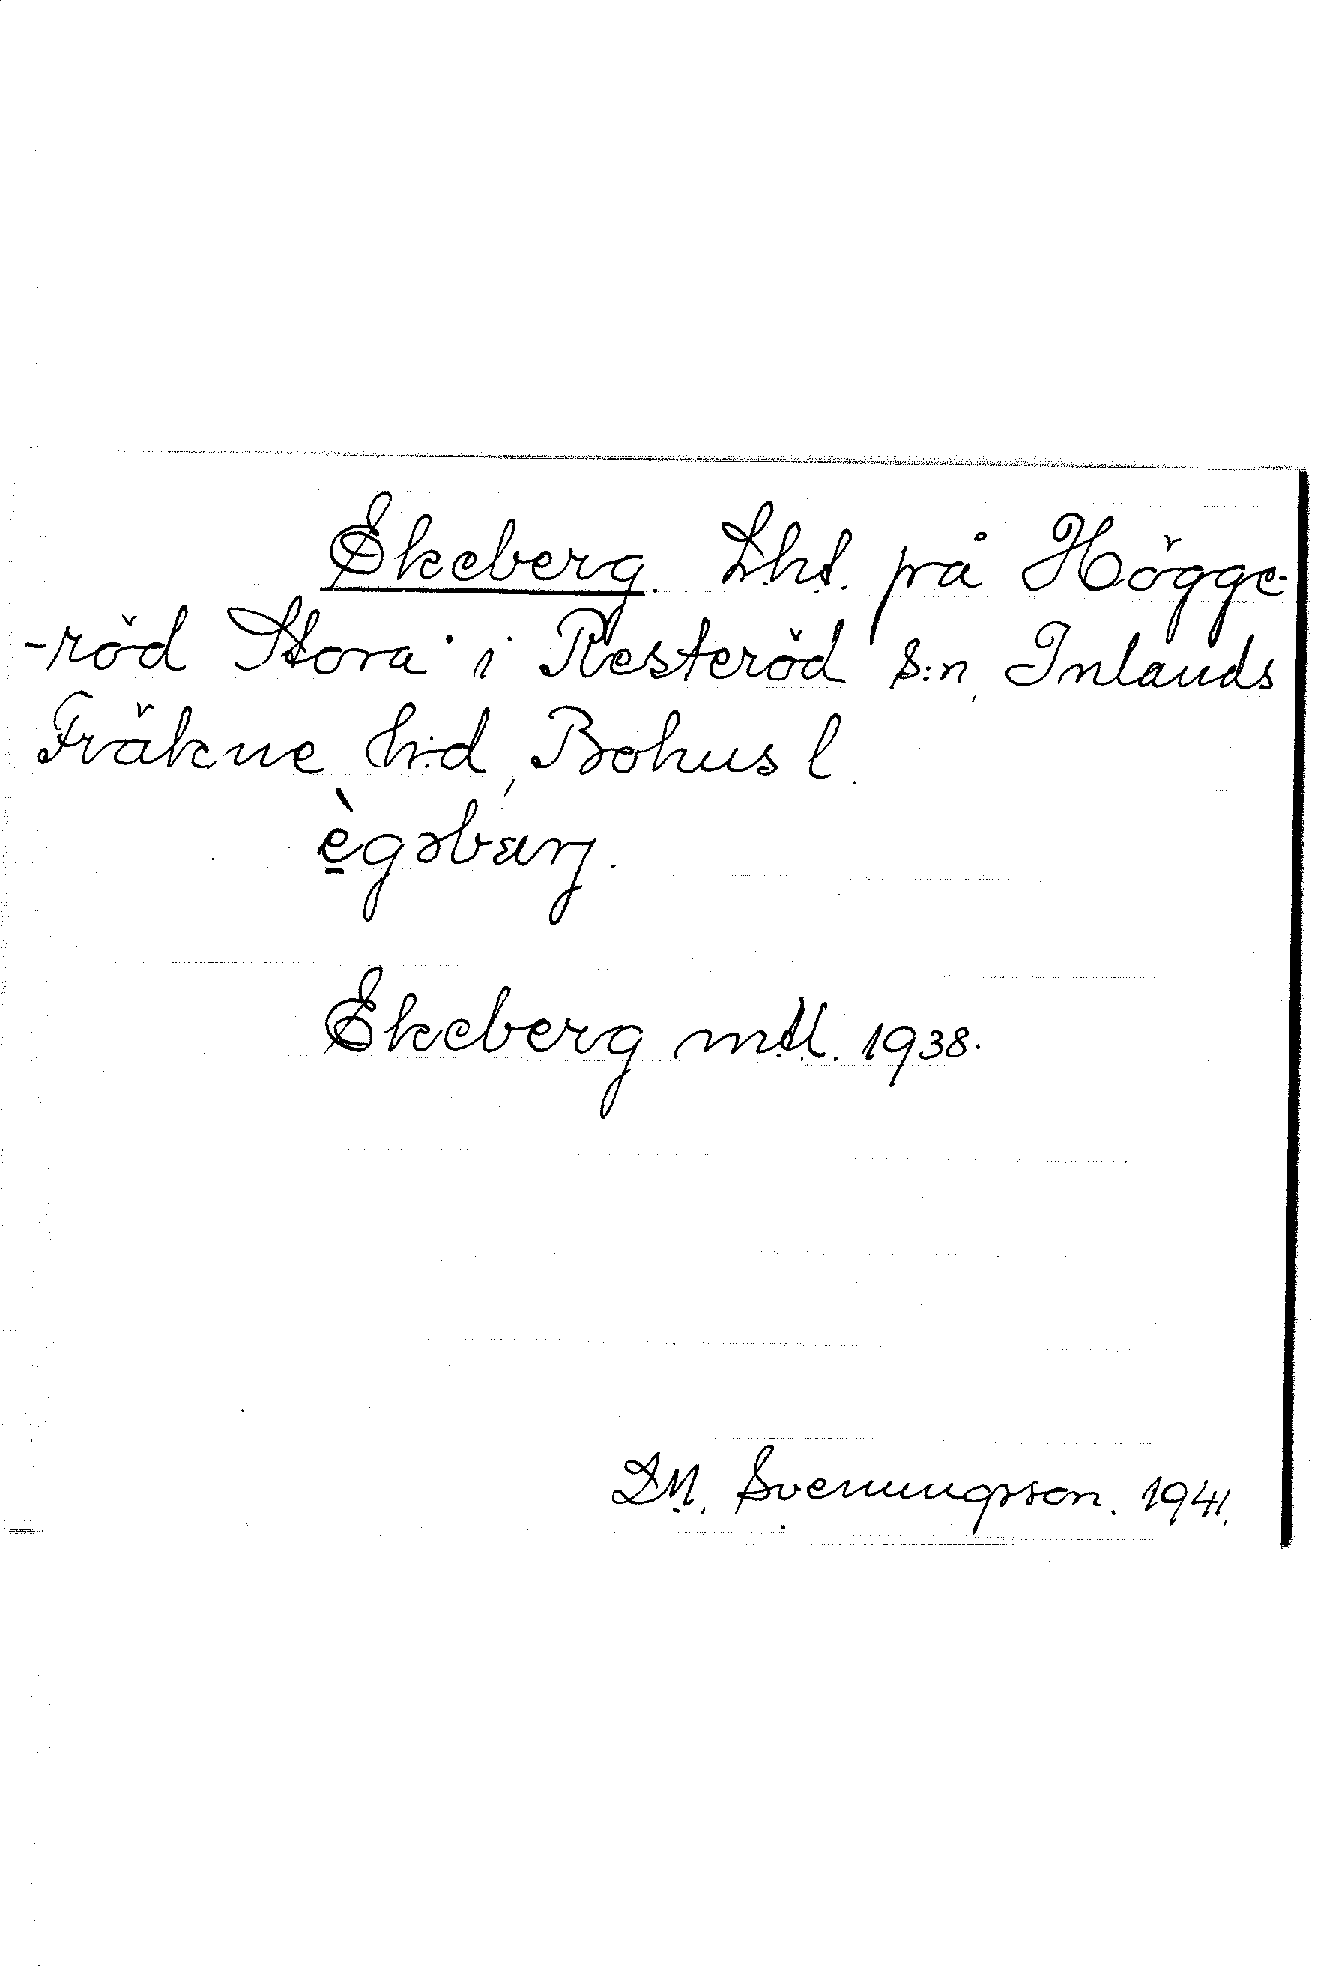 Ekeberg. Lht. på Högge-
-röd Stora i Resteröd s:n, Inlands
Fräkne h:d, Bohus l.
è̠gəbærj.
Ekeberg mtl. 1938.
D.M. Svenungsson. 1941.